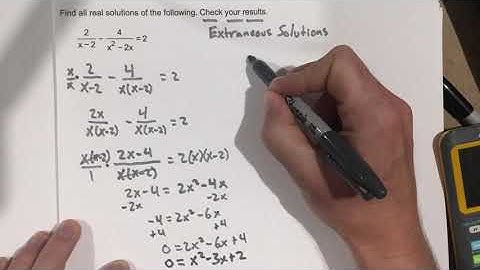 Find all real solutions of the following. Check your results.
2/(x-2) - 4/(x²-2x) = 2
Extraneous Solutions
x/x · 2/(x-2) - 4/(x(x-2)) = 2
2x/(x(x-2)) - 4/(x(x-2)) = 2
x(x-2)/1 · (2x-4)/(x(x-2)) = 2(x)(x-2)
2x-4 = 2x²-4x
-2x -2x
-4 = 2x²-6x
+4 +4
0 = 2x²-6x+4
0 = x²-3x+2